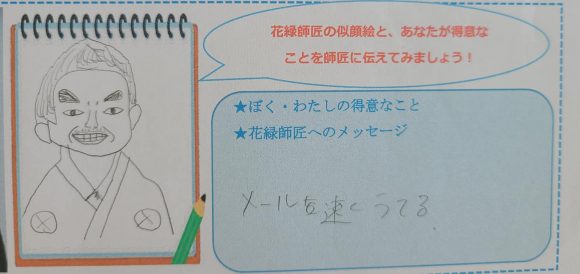 花緑師匠の似顔絵と、あなたが得意な
ことを師匠に伝えてみましょう！
★ぼく・わたしの得意なこと
★花緑師匠へのメッセージ
メールを速くうてる